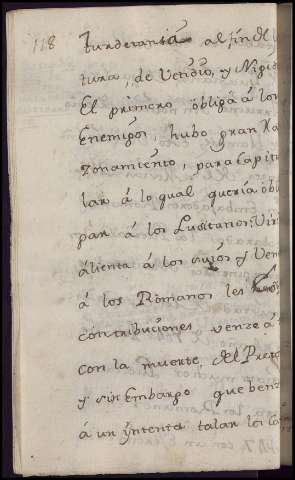 118
turdetania al fin dl
tura, de Vendio, y Nigid
El primero obliga á los
Enemigos, hubo gran Ra
zonamiento, para Capitu
lar á lo qual queria obli
par á los Lusitanos; Vir
álienta á los suios y Ven
á los Romanos les
contribuciones venze á
con la muerte, del Pret
y sin embargo que benz
á un yntenta talar los Ca